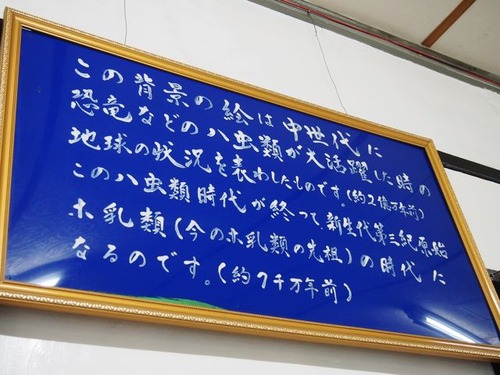 この背景の絵は中世代に
恐竜などのハ虫類が大活躍した時の
地球の状況を表わしたものです。(約2億万年前)
このハ虫類時代が終って、新生代第三紀原始
ホ乳類(今のホ乳類の先祖)の時代に
なるのです。(約7千万年前)